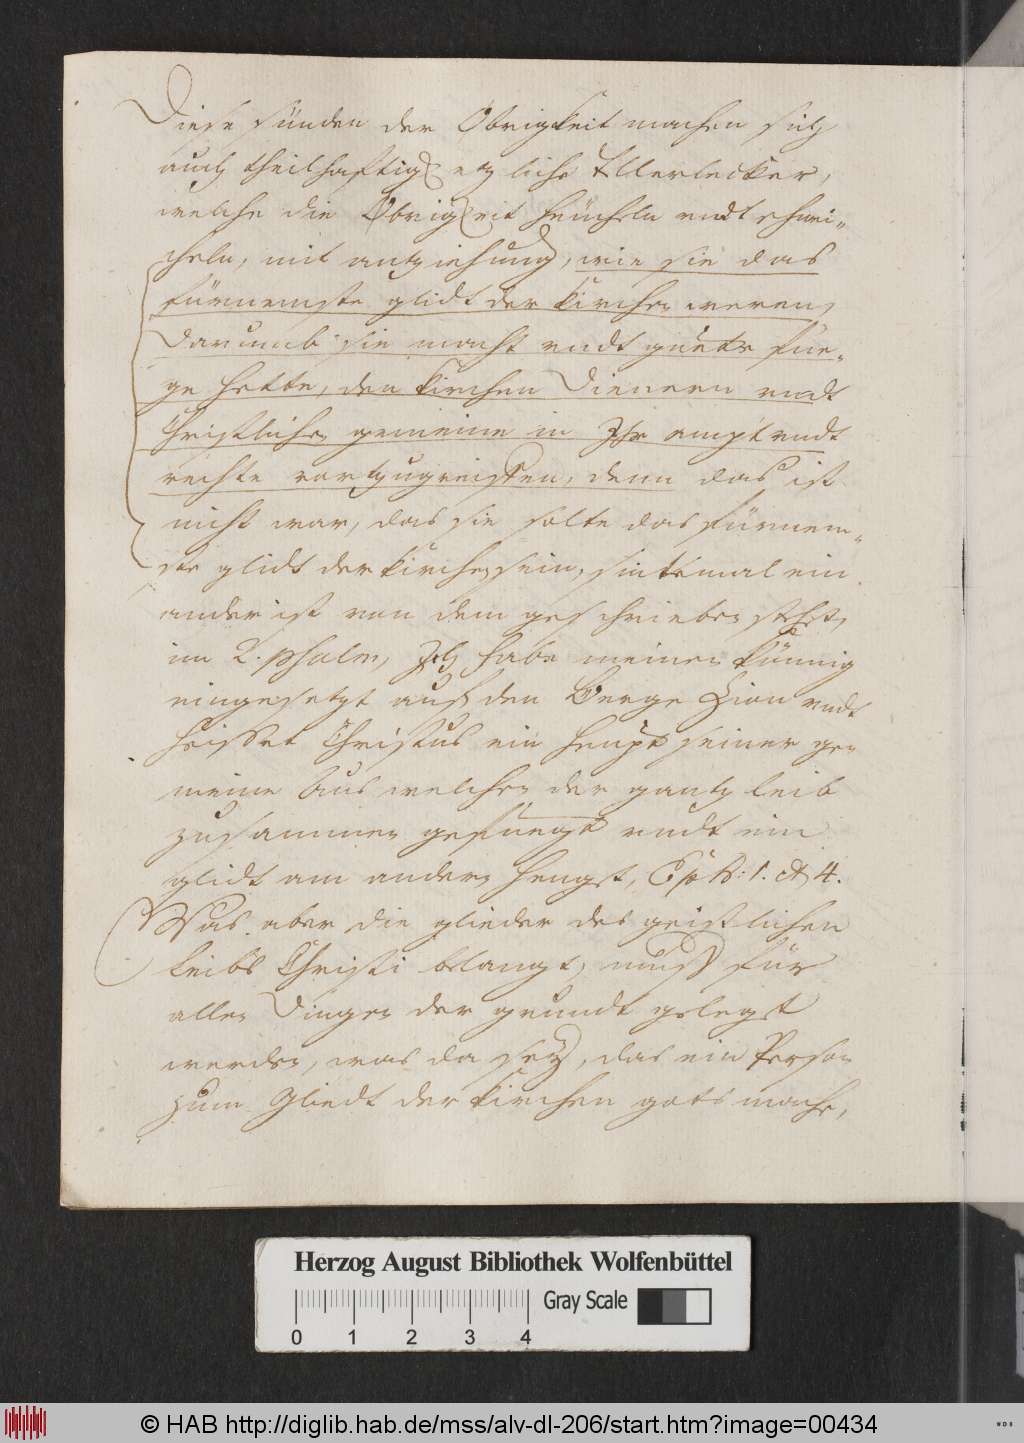 Diese sünden der Obrigkeit machen sich
auch theilhafftig etzliche Tellerlecker,
welche die Obrigkeit heucheln vndt schmei¬
cheln, mit antziehung, wie sie das
fürnemste glidt der Kirchen weren,
Darumb sie macht vndt guete fue¬
ge hette, den Kirchen Dienern vndt
Christlichen gemeine in Ihr ampt vndt
rechte vortzugreiffen, denn das ist
nicht war, das sie solte das fürnem¬
ste glidt der Kirchen sein, sintemal ein
ander ist von dem geschrieben stehet,
im 2. Psalm, Ich habe meinen Künnig
eingesetzt auff den Berge Zion vndt
heisset Christus ein heupt seiner ge
meine Aus welchen der gantz leib
zusammen gefuegt vndt ein
glidt am andern hengt, Eph: 1. et 4.
Was aber die glieder des geistlichen
leibs Christi belangt, muss für
allen Dingen der grundt gelegt
werden, was da sey, das ein Person
zum Gliedt der Kirchen gots mache,
Herzog August Bibliothek Wolfenbüttel
0 1 2 3 4 Gray Scale
© HAB http://diglib.hab.de/mss/alv-dl-206/start.htm?image=00434